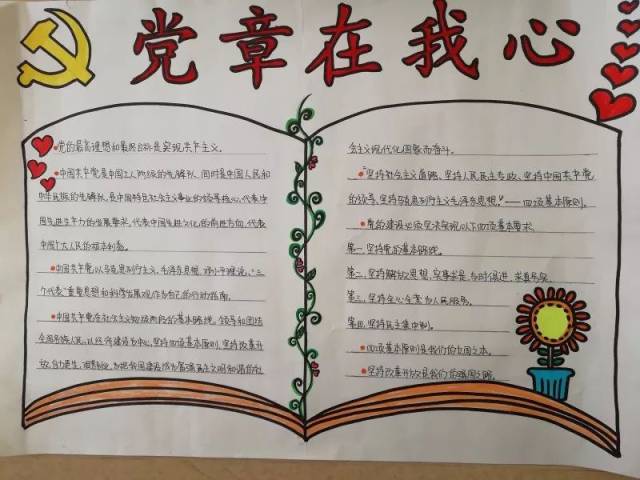 党章在我心
党的最高理想和最终目标是实现共产主义。
中国共产党是中国工人阶级的先锋队，同时是中国人民和
中华民族的先锋队，是中国特色社会主义事业的领导核心，代表中
国先进生产力的发展要求，代表中国先进文化的前进方向，代表
中国广大人民的根本利益。
中国共产党以马克思列宁主义、毛泽东思想、邓小平理论、“三
个代表”重要思想和科学发展观作为自己的行动指南。
中国共产党在社会主义初级阶段的基本路线：领导和团结
全国各族人民，以经济建设为中心，坚持四项基本原则，坚持改革开
放，自力更生，艰苦创业，为把我国建设成为富强民主文明和谐的社
会主义现代化国家而奋斗。
“坚持社会主义道路、坚持人民民主专政、坚持中国共产党
的领导、坚持马克思列宁主义毛泽东思想。”——四项基本原则。
党的建设必须坚决实现以下四项基本要求。
第一，坚持党的基本路线。
第二，坚持解放思想，实事求是，与时俱进，求真务实。
第三，坚持全心全意为人民服务。
第四，坚持民主集中制。
四项基本原则是我们的立国之本。
坚持改革开放是我们的强国之路。